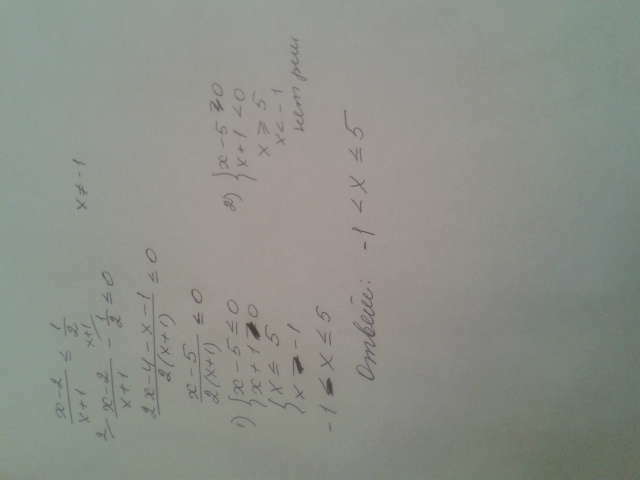 x-2/x+1 ≤ 1/2 x ≠ -1
2/ x-2/x+1 - x+1/ 1/2 ≤ 0
2x-4-x-1/2(x+1) ≤ 0
x-5/2(x+1) ≤ 0
1) { x-5 ≤ 0
x+1 > 0
{ x ≤ 5
x > -1
-1 < x ≤ 5
2) { x-5 ≥ 0
x+1 < 0
x ≥ 5
x < -1
нет реш
Ответ: -1 < x ≤ 5